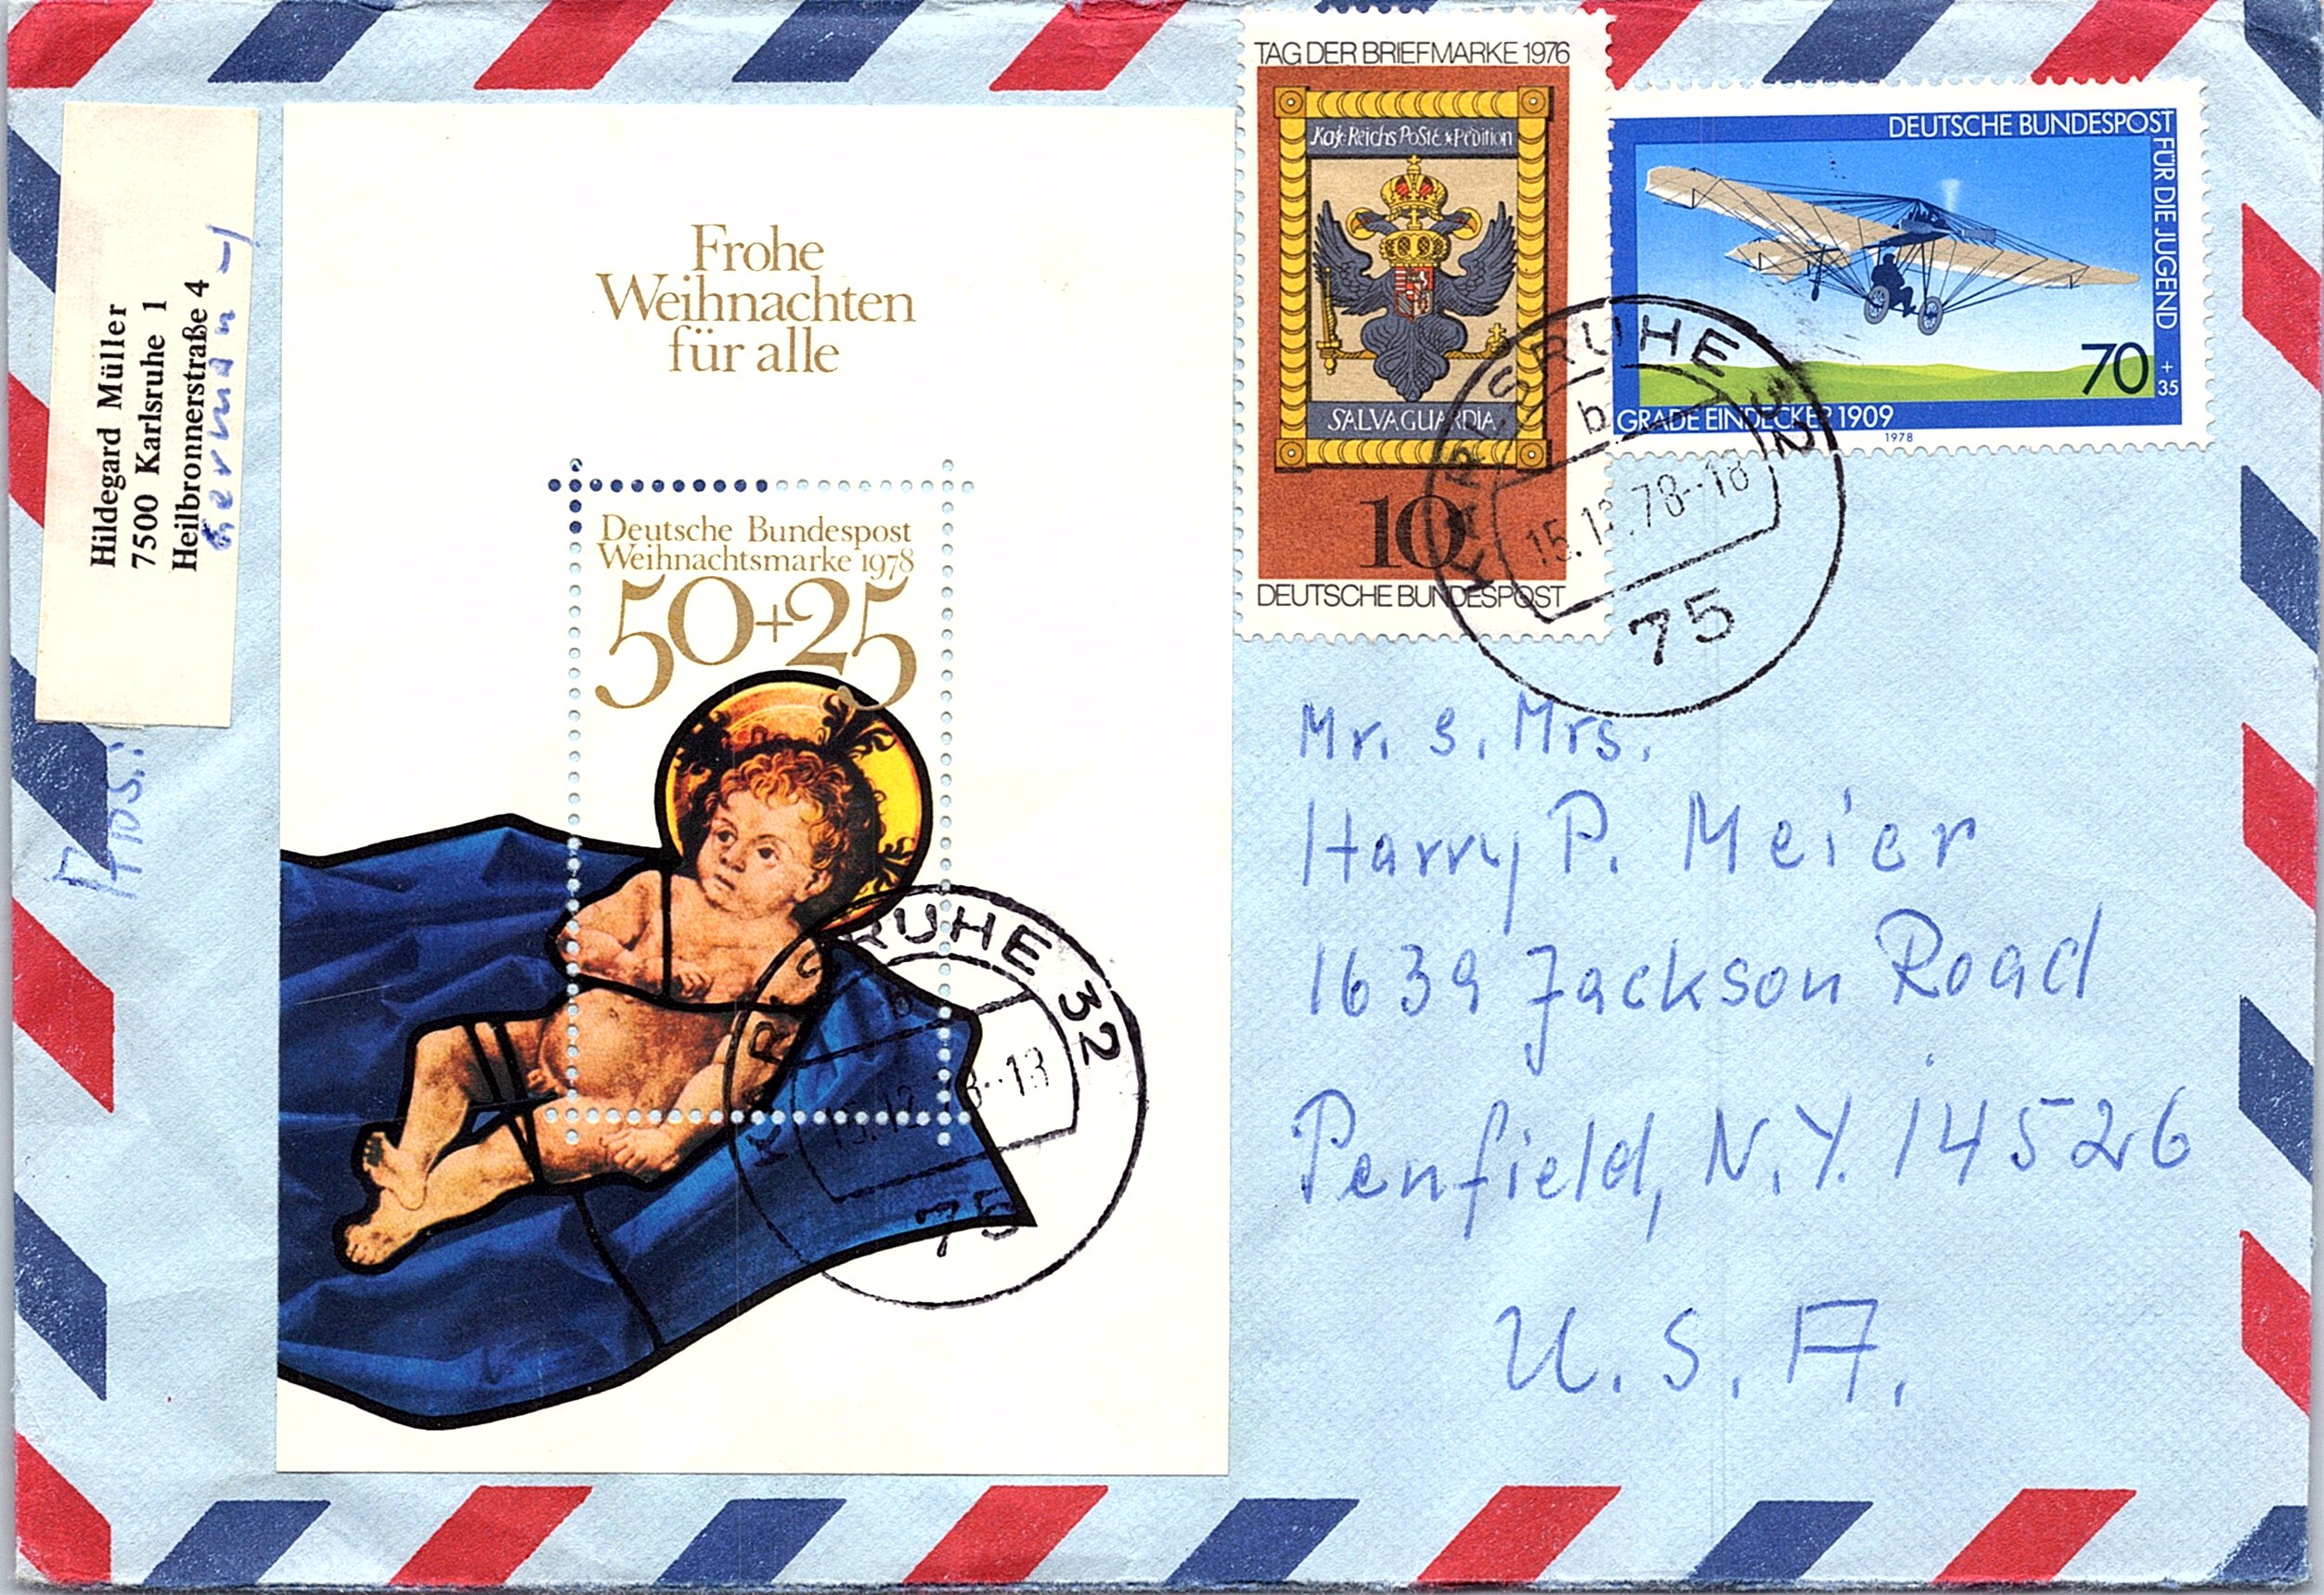 Hildegard Müller
7500 Karlsruhe 1
Heilbronnerstraße 4
German-y
Abs.:
Frohe
Weihnachten
für alle
Deutsche Bundespost
Weihnachtsmarke 1978
50+25
KARLSRUHE 32
b
15.12.78--18
75
TAG DER BRIEFMARKE 1976
Kays: Reichs PoStE xPedition
SALVA GUARDIA
10
DEUTSCHE BUNDESPOST
DEUTSCHE BUNDESPOST
FÜR DIE JUGEND
70 + 35
GRADE EINDECKER 1909
1978
KARLSRUHE 32
b
15.12.78--18
75
Mr. s. Mrs.
Harry P. Meier
1639 Jackson Road
Penfield, N.Y. 14526
U.S.A.